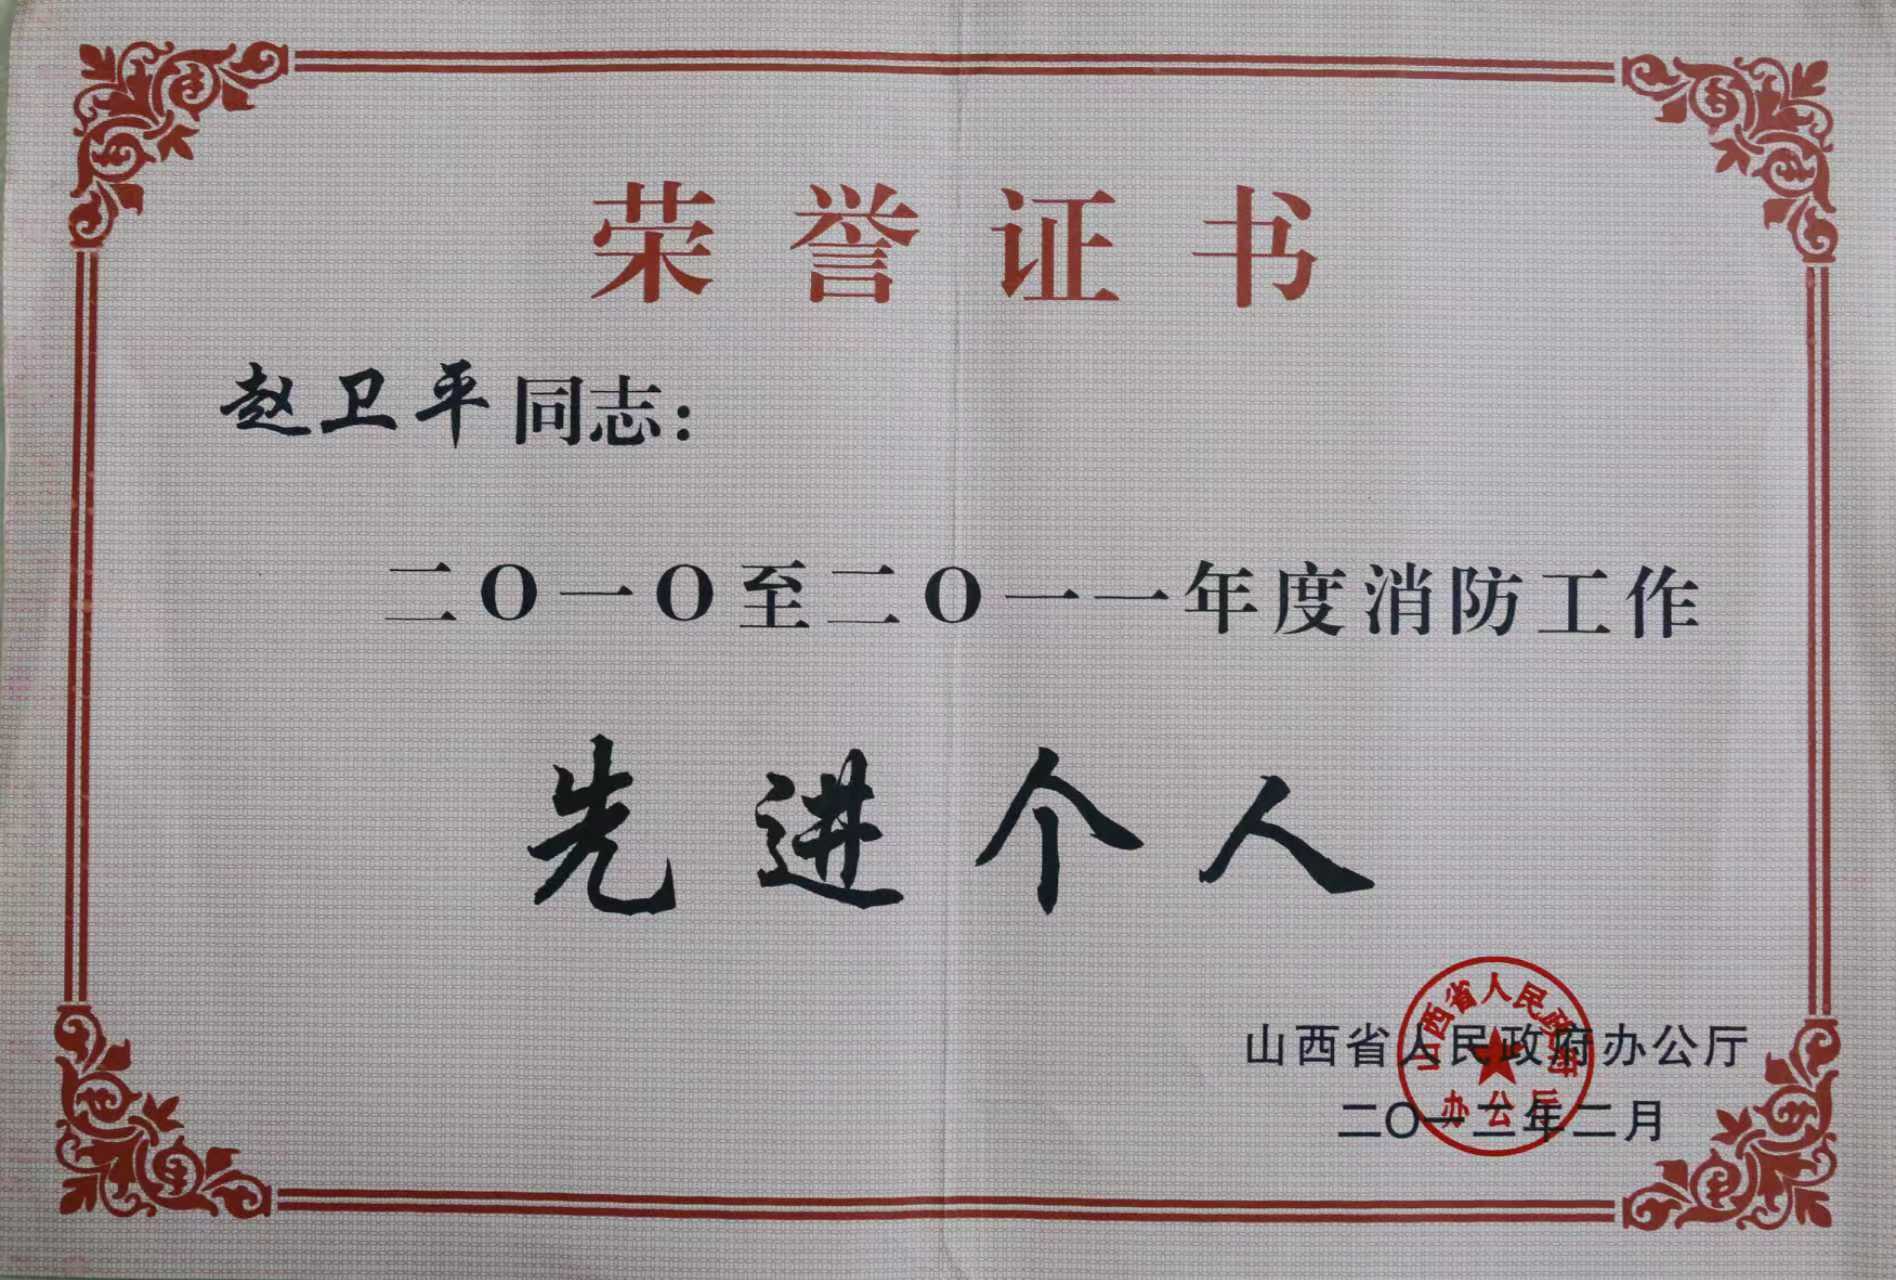 荣誉证书
赵卫平同志：
二〇一〇至二〇一一年度消防工作
先进个人
山西省人民政府办公厅
二〇一二年二月
山西省人民政府
办公厅